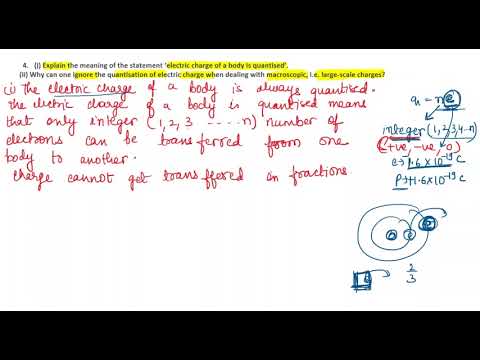 4. (i) Explain the meaning of the statement 'electric charge of a body is quantised'.
(ii) Why can one ignore the quantisation of electric charge when dealing with macroscopic, i.e. large-scale charges?
(i) the electric charge of a body is always quantised.
the elctric charge of a body is quantised means
that only integer (1, 2, 3 ----- n) number of
electrons can be transferred from one
body to another.
charge cannot get transffered in fractions
q = ne
integer (1, 2, 3, 4 - n)
(+ve, -ve, 0)
1.6 × 10⁻¹⁹ C
P → +1.6 × 10⁻¹⁹ C
2
3